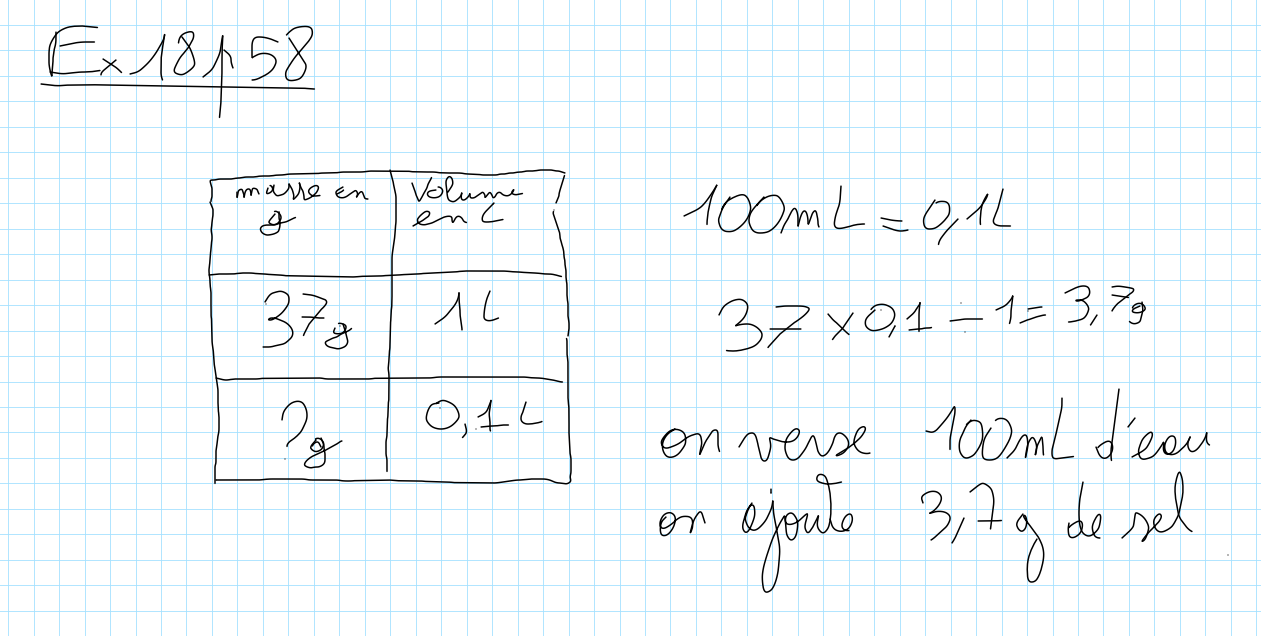 Ex 18 p 58
masse en g
Volume en L
37g
1L
?g
0,1L
100mL = 0,1L
37 x 0,1 ÷ 1 = 3,7g
on verse 100mL d'eau
on ajoute 3,7g de sel